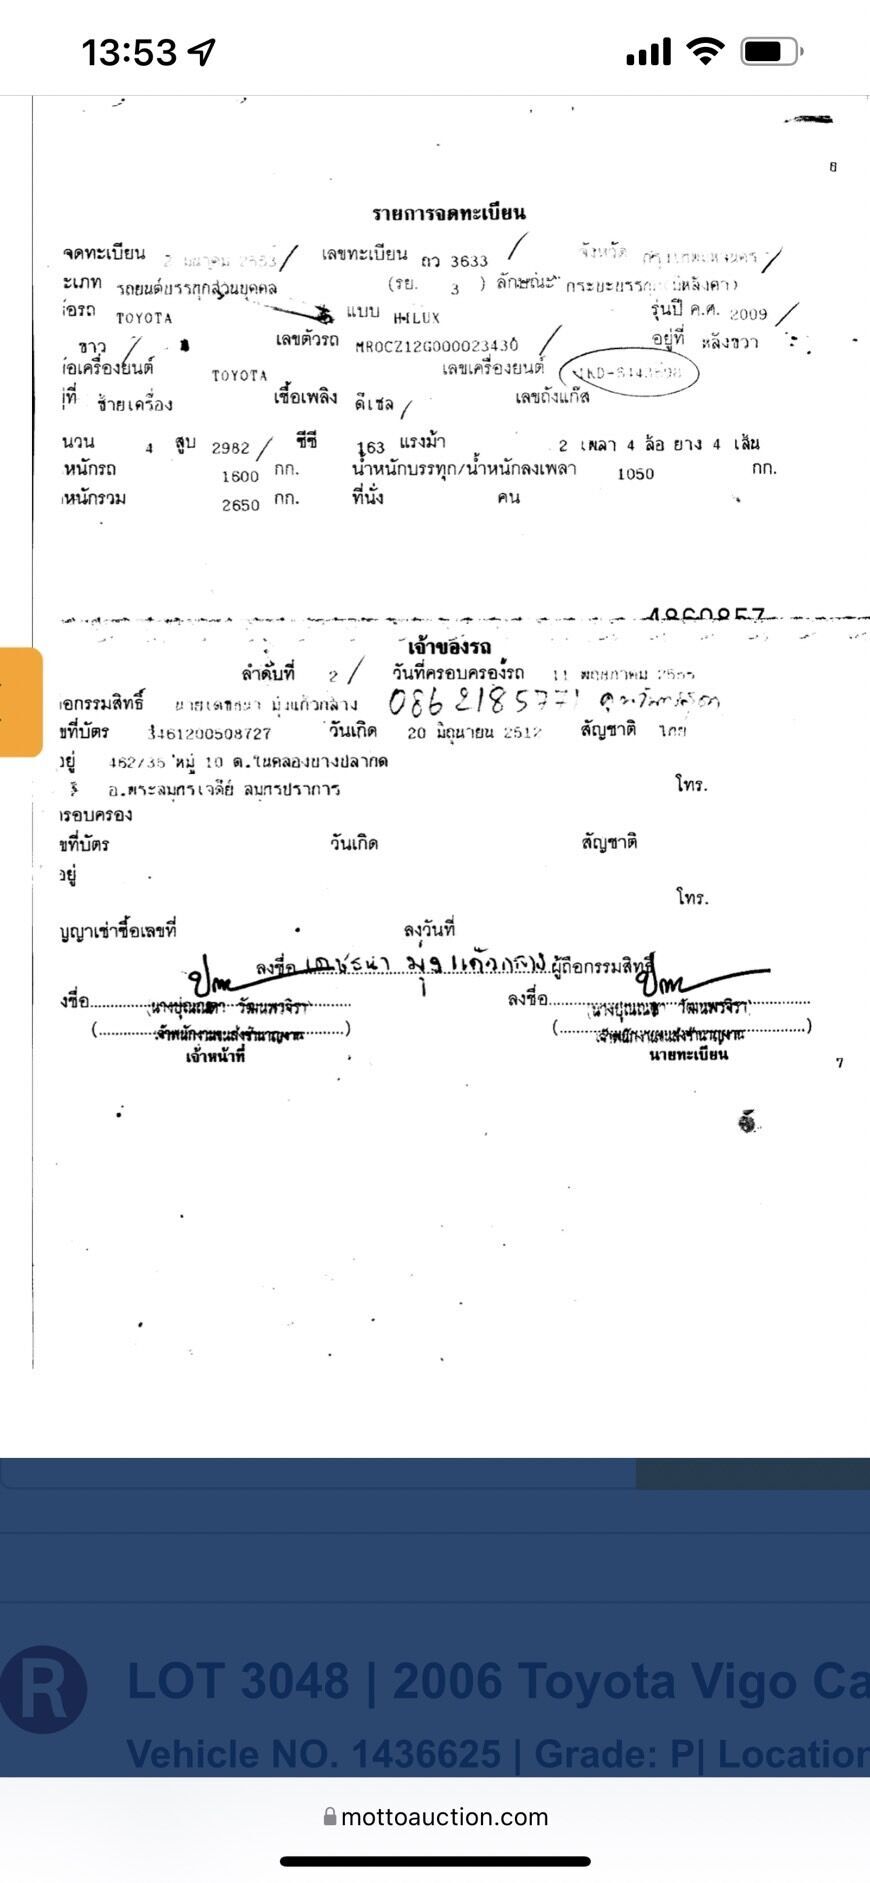 13:53
6
รายการจดทะเบียน
จดทะเบียน 2 2553 เลขทะเบียน ถว 3633 จังหวัด กรุงเทพมหานคร
ะเภท รถยนต์บรรทุกส่วนบุคคล (รย. 3 ) ลักษณะ กระบะบรรทุก มีหลังคา)
่อรถ TOYOTA แบบ HILUX รุ่นปี ค.ศ. 2009
ขาว เลขตัวรถ MR0CZ12G000023430 อยู่ที่ หลังขวา
่อเครื่องยนต์ TOYOTA เลขเครื่องยนต์
ู่ที่ ซ้ายเครื่อง เชื้อเพลิง ดีเซล เลขถังแก๊ส
นวน 4 สูบ 2982 ซีซี 163 แรงม้า 2 เพลา 4 ล้อ ยาง 4 เส้น
หนักรถ 1600 กก. น้ำหนักบรรทุก/น้ำหนักลงเพลา 1050 กก.
หนักรวม 2650 กก. ที่นั่ง คน
4860857
เจ้าของรถ
ลำดับที่ 2 วันที่ครอบครองรถ 11 พฤษภาคม 2555
อกรรมสิทธิ์ มุ่งแก้วกลาง 0862185771
ขที่บัตร 3461200508727 วันเกิด 20 มิถุนายน 2512 สัญชาติ ไทย
อยู่ 462/35 หมู่ 10 ต.ในคลองบางปลากด
อ.พระสมุทรเจดีย์ สมุทรปราการ โทร.
ครอบครอง
ขที่บัตร วันเกิด สัญชาติ
อยู่
โทร.
ญญาเช่าซื้อเลขที่ ลงวันที่
ลงชื่อ มุ่งแก้วกลาง ผู้ถือกรรมสิทธิ์
งชื่อ วัฒนพรจิรา ลงชื่อ วัฒนพรจิรา
(เจ้าพนักงานขนส่งชำนาญงาน) (เจ้าพนักงานขนส่งชำนาญงาน)
เจ้าหน้าที่ นายทะเบียน
7
R
LOT 3048 | 2006 Toyota Vigo Ca
Vehicle NO. 1436625 | Grade: P| Location
mottoauction.com